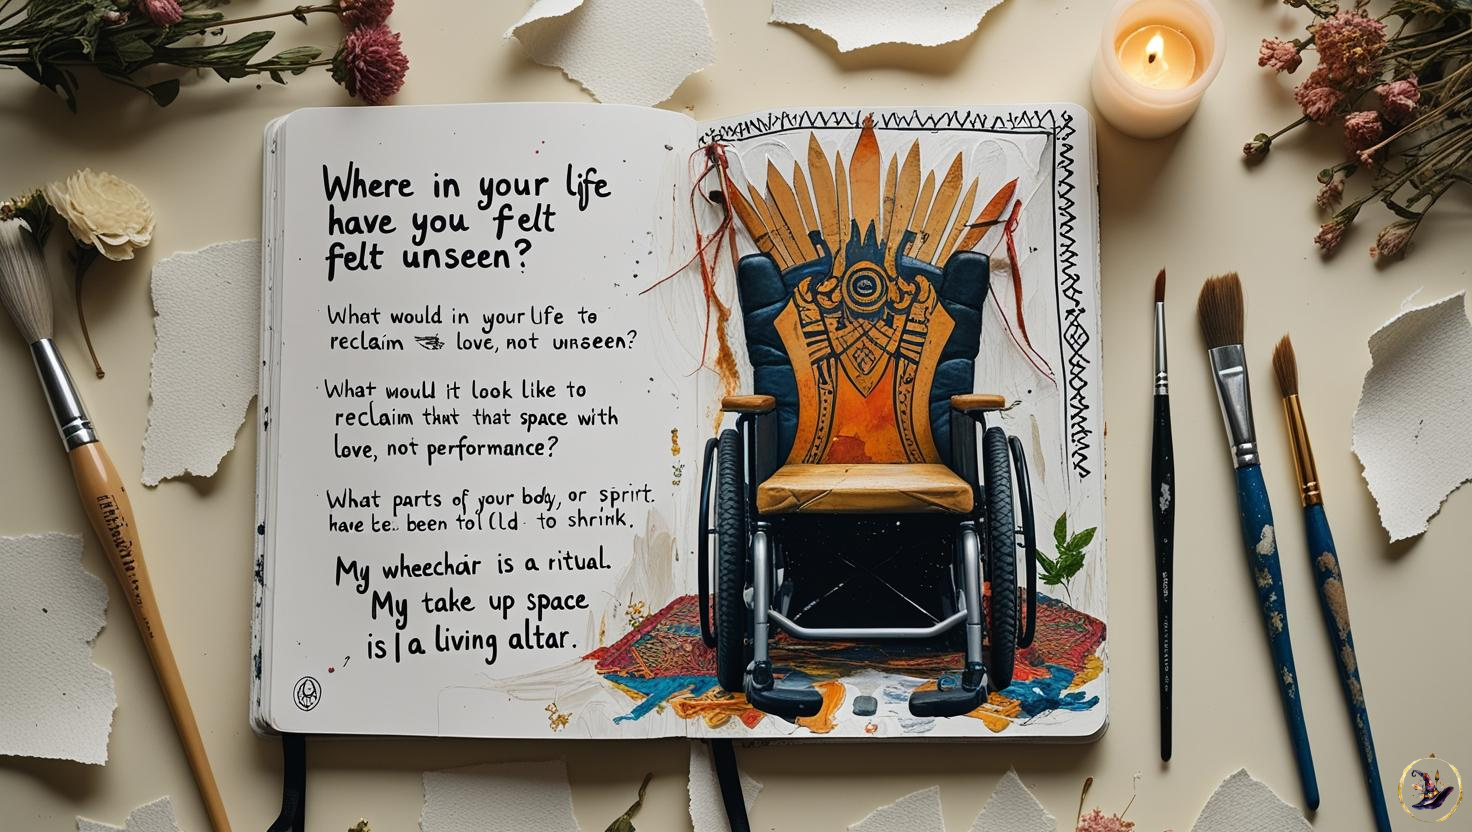 Where in your life
have you felt
felt unseen?
What would in your life to
reclaim love, not unseen?
What would it look like to
reclaim that that space with
love, not performance?
What parts of your body, or spirit.
have te.. been to shrink.
My wheechair is a ritual.
My take up space
is | a living altar.